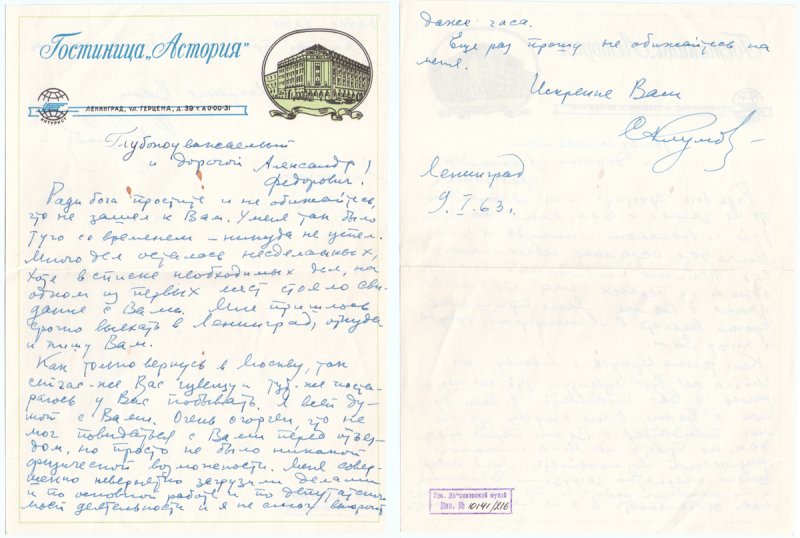 Гостиница „Астория"
ИНТУРИСТ
ЛЕНИНГРАД, УЛ. ГЕРЦЕНА, Д. 39 т. А 000-31
Глубокоуважаемый
и дорогой Александр
Федорович!
Ради бога простите и не обижайтесь,
что не зашел к Вам. У меня так было
туго со временем – никуда не успел.
Много дел осталось несделанных,
хотя в списке необходимых дел, на
одном из первых мест стояло сви-
дание с Вами. Мне пришлось
срочно выехать в Ленинград, откуда
и пишу Вам.
Как только вернусь в Москву, так
сейчас-же Вас извещу и тут-же поста-
раюсь у Вас побывать. Я всей ду-
шой с Вами. Очень огорчен, что не
мог повидаться с Вами перед отъез-
дом, но просто не было никакой
физической возможности. Меня совер-
шенно невероятно загрузили делами
и по основной работе и по депутатской
моей деятельности и я не смог выкроить
даже часа.
Еще раз прошу не обижайтесь на
меня.
Искренне Ваш
Ленинград
9.I.63 г.
Гос. Литературный музей
Инв. № 10141/216